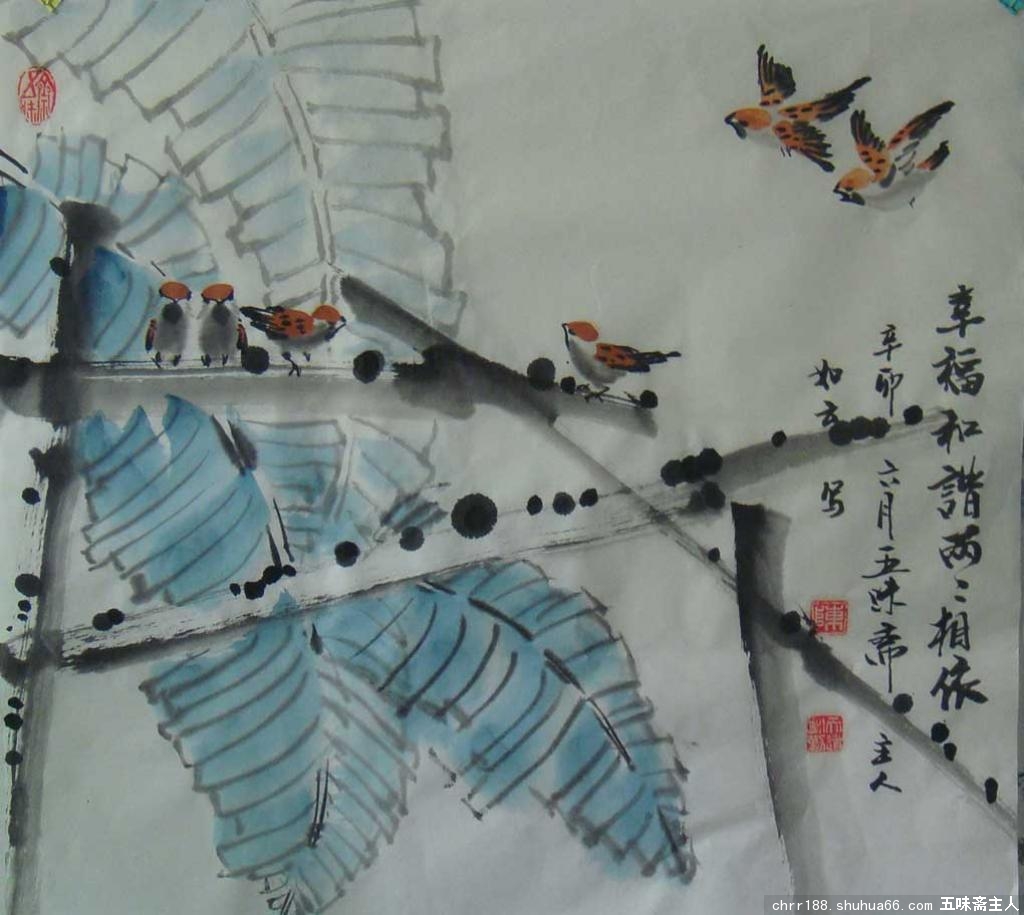 幸福和谐两〻相依
辛卯六月五味斋主人
如玄写
陳
chrr188.shuhua66.com 五味斋主人